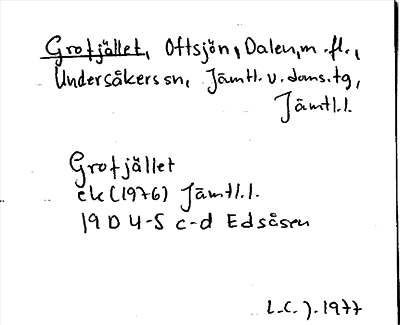 Grofjället, Ottsjön, Dalen, m.fl.,
Undersåkers sn, Jämtl. v. doms. tg,
Jämtl.l.
Grofjället
ek (1976) Jämtl.l.
19 D 4-5 c-d Edsåsen
L.C.J. 1977